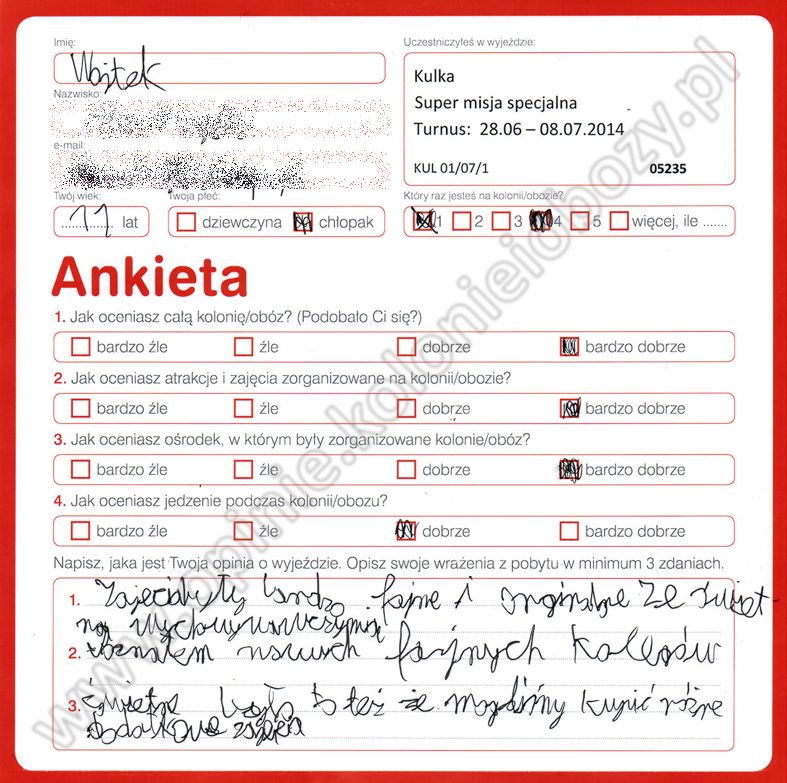 Imię:
Wojtek
Nazwisko:
e-mail:
Twój wiek:
11 lat
Twoja płeć:
dziewczyna chłopak
Uczestniczyłeś w wyjeździe:
Kulka
Super misja specjalna
Turnus: 28.06 – 08.07.2014
KUL 01/07/1 05235
Który raz jesteś na kolonii/obozie?
1 2 3 4 5 więcej, ile .......
Ankieta
1. Jak oceniasz całą kolonię/obóz? (Podobało Ci się?)
bardzo źle źle dobrze bardzo dobrze
2. Jak oceniasz atrakcje i zajęcia zorganizowane na kolonii/obozie?
bardzo źle źle dobrze bardzo dobrze
3. Jak oceniasz ośrodek, w którym były zorganizowane kolonie/obóz?
bardzo źle źle dobrze bardzo dobrze
4. Jak oceniasz jedzenie podczas kolonii/obozu?
bardzo źle źle dobrze bardzo dobrze
Napisz, jaka jest Twoja opinia o wyjeździe. Opisz swoje wrażenia z pobytu w minimum 3 zdaniach.
1. Zajęcia były bardzo fajne i orginalne ze świet-
ną
2. fajnych kolegów
3. Świetne było to też że mogliśmy kupić różne
dodatkowe zajęcia
www.opinie.kolonieiobozy.pl